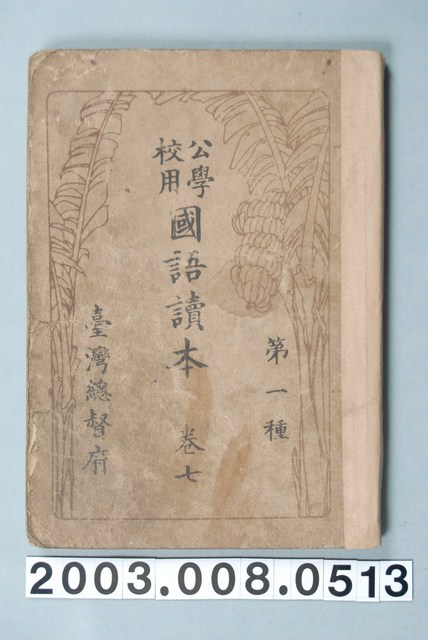 第一種
公學校用
國語讀本 卷七
臺灣總督府
2003.008.0513